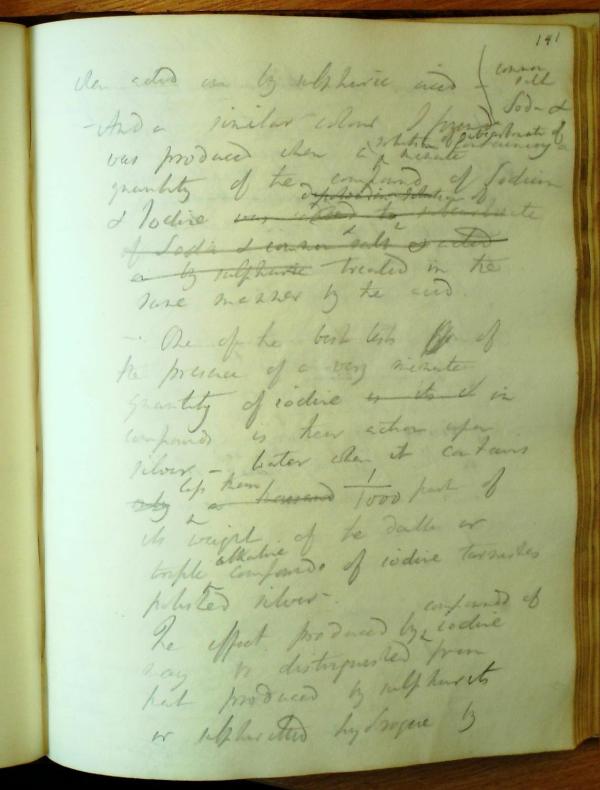 141
when acted on by sulphuric acid -
common
salt
- And a similar colour I found
Soda &
was produced when a solution of subcarbonate of
containing a
minute
quantity of the compound of Sodium
& Iodine was to
of Soda & common salt & acted
on by sulphuric treated in the
same manner by the acid.
- One of the best tests of
the presence of a very minute
quantity of iodine in
compounds is their action upon
silver - Water when it contains
only less than a thousand 1/1000 part of
its weight of the double or
triple alkaline compounds of iodine tarnishes
polished silver -
The effect produced by compounds of iodine
may be distinguished from
that produced by sulphurets
or sulphuretted hydrogene by